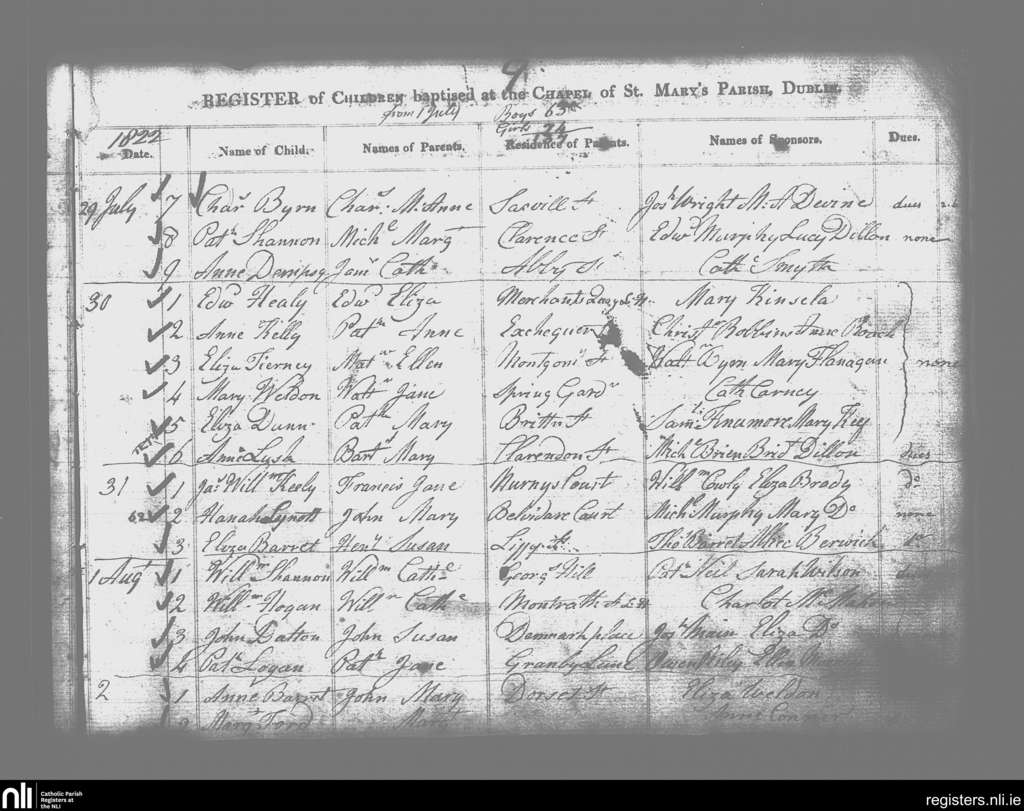 9
REGISTER of CHILDREN baptised at the CHAPEL of St. MARY'S PARISH, DUBLIN.
from 1 July Boys 63
Girls 74
137
1822
Date. Name of Child. Names of Parents. Residence of Parents. Names of Sponsors. Dues.
29 July 7 Chas Byrn Chas M. Anne Sacvill St Jos Wright M. A Devine dues
8 Patk Shannon Michl Margt Clarence St Edwd Murphy Lucy Dillon none
9 Anne Dempsy Jams Cath Abby St Cath Smyth
30 1 Edwd Healy Edwd Eliza Merchants Quay Mary Kinsela
2 Anne Kelly Patk Anne Exchequer Christr Robbins Anne
3 Eliza Tierney Matw Ellen Montgomy St Byrn Mary Flanagan none
4 Mary Weldon Waltr Jane Spring Gardn Cath Carney
5 Eliza Dunn Patk Mary Brittn St Saml Finamore Mary Key
6 Anne Lysh Bart Mary Clarendon St Michl Brien Bridt Dillon dues
31 1 Jas Willm Keely Francis Jane Murnys Court Willm Cowly Eliza Brady do
2 Hanah Lynott John Mary Belvidare Court Michl Murphy Mary Do none
3 Eliza Barret Henry Susan Liffy St Thos Barret Berwick do
1 Augt 1 Willm Shannon Willm Cathe Georgs Hill Patk Neil Sarah Wilson
2 Willm Hogan Willm Cathe Montrath St Charlot McMahon
3 John Dalton John Susan Denmark place Josh Main Eliza Do
4 Patk Logan Patk Jane Granby Lane Owen Ellen
2 1 Anne Barret John Mary Dorset St Eliza Weldan
2 Margt Ford Anne Connor
nli Catholic Parish
Registers at
the NLI
registers.nli.ie